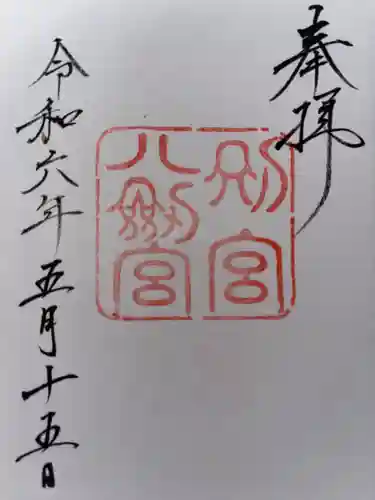 奉拝
別宮
八剣宮
令和六年五月十五日